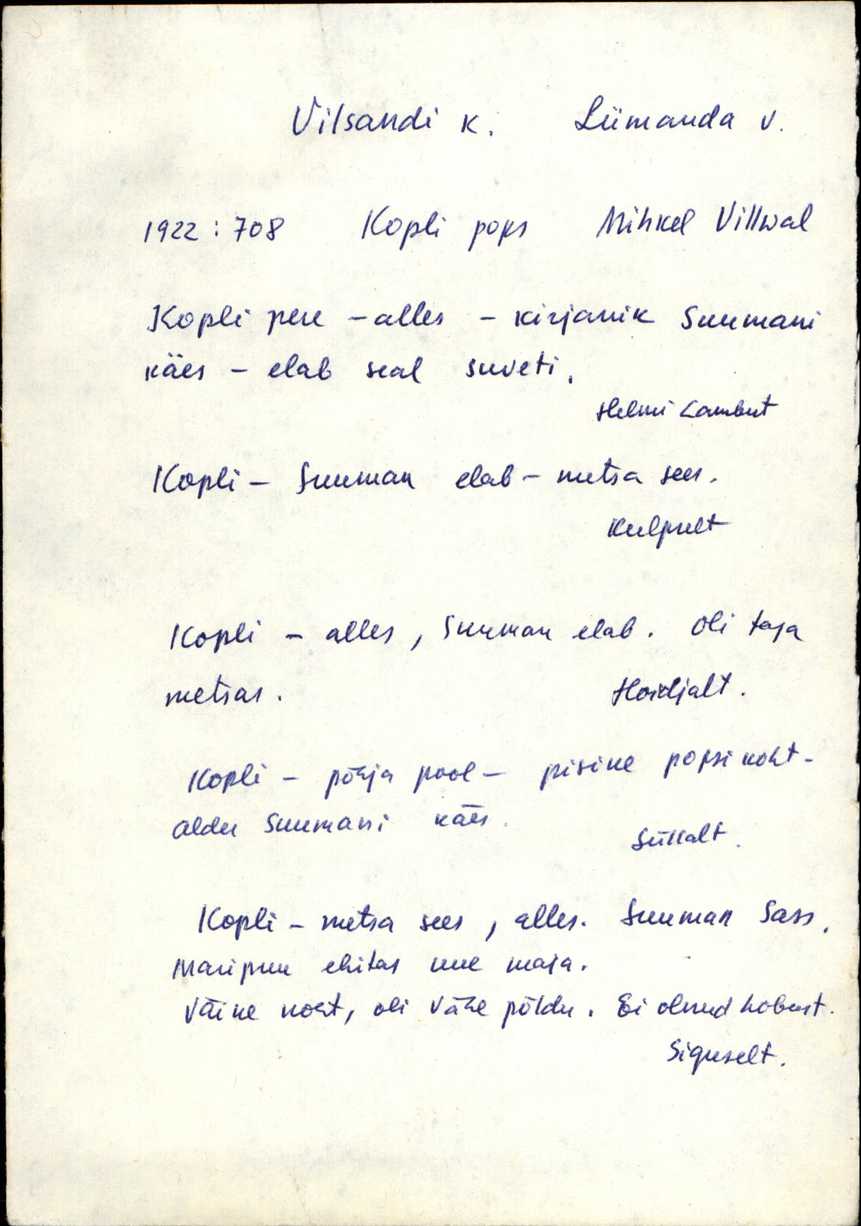 Vilsandi k. Lümanda v.
1922:708 Kopli pops Mihkel Villwal
Kopli pere – alles – kirjanik Suumani
käes – elab seal suveti.
Helmi Lambut
Kopli – Suuman elab – metsa sees.
Kulpult
Kopli – alles, Suuman elab. Oli taga
metsas. Hoidjalt.
Kopli – põhja pool – pisine popsi koht –
Suumani käes.
Süllalt.
Kopli – metsa sees, alles. Suuman Sass.
Maripuu ehitas uue maja.
Väike koht, oli vähe põldu. Ei olnud hobust.
Siguselt.